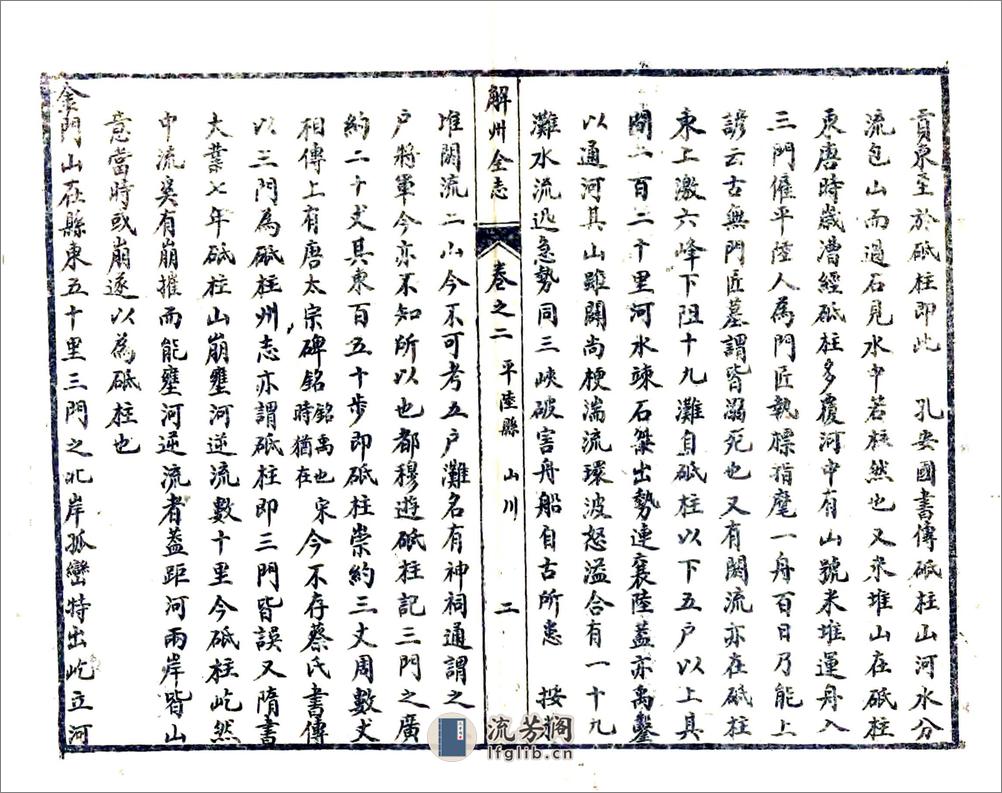 貢東至於砥柱即此　孔安國書傳砥柱山河水分
流包山而過石見水中若柱然也又米堆山在砥柱
東唐時歲漕經砥柱多覆河中有山號米堆運舟入
三門僱平陸人為門匠執標指麾一舟百日乃能上
諺云古無門匠墓謂皆溺死也又有閼流亦在砥柱
東上激六峰下阻十九灘自砥柱以下五户以上其
間二百二十里河水竦石桀出勢連襄陸蓋亦禹鑿
以通河其山雖闢尚梗湍流環波怒溢合有一十九
灘水流迅急勢同三峽破害舟船自古所患　按
解州全志　卷之二　平陸縣　山川　二
堆閼流二山今不可考五户灘名有神祠通謂之
户將軍今亦不知所以也都穆遊砥柱記三門之廣
約二十丈其東百五十步即砥柱崇約三丈周數丈
相傳上有唐太宗碑銘銘禹也宋時猶在今不存蔡氏書傳
以三門為砥柱州志亦謂砥柱即三門皆誤又隋書
大業七年砥柱山崩壅河逆流數十里今砥柱屹然
中流奚有崩摧而能壅河逆流者蓋距河兩岸皆山
意當時或崩遂以為砥柱也
金門山在縣東五十里三門之北岸孤巒特出屹立河
流芳閣
lfglib.cn